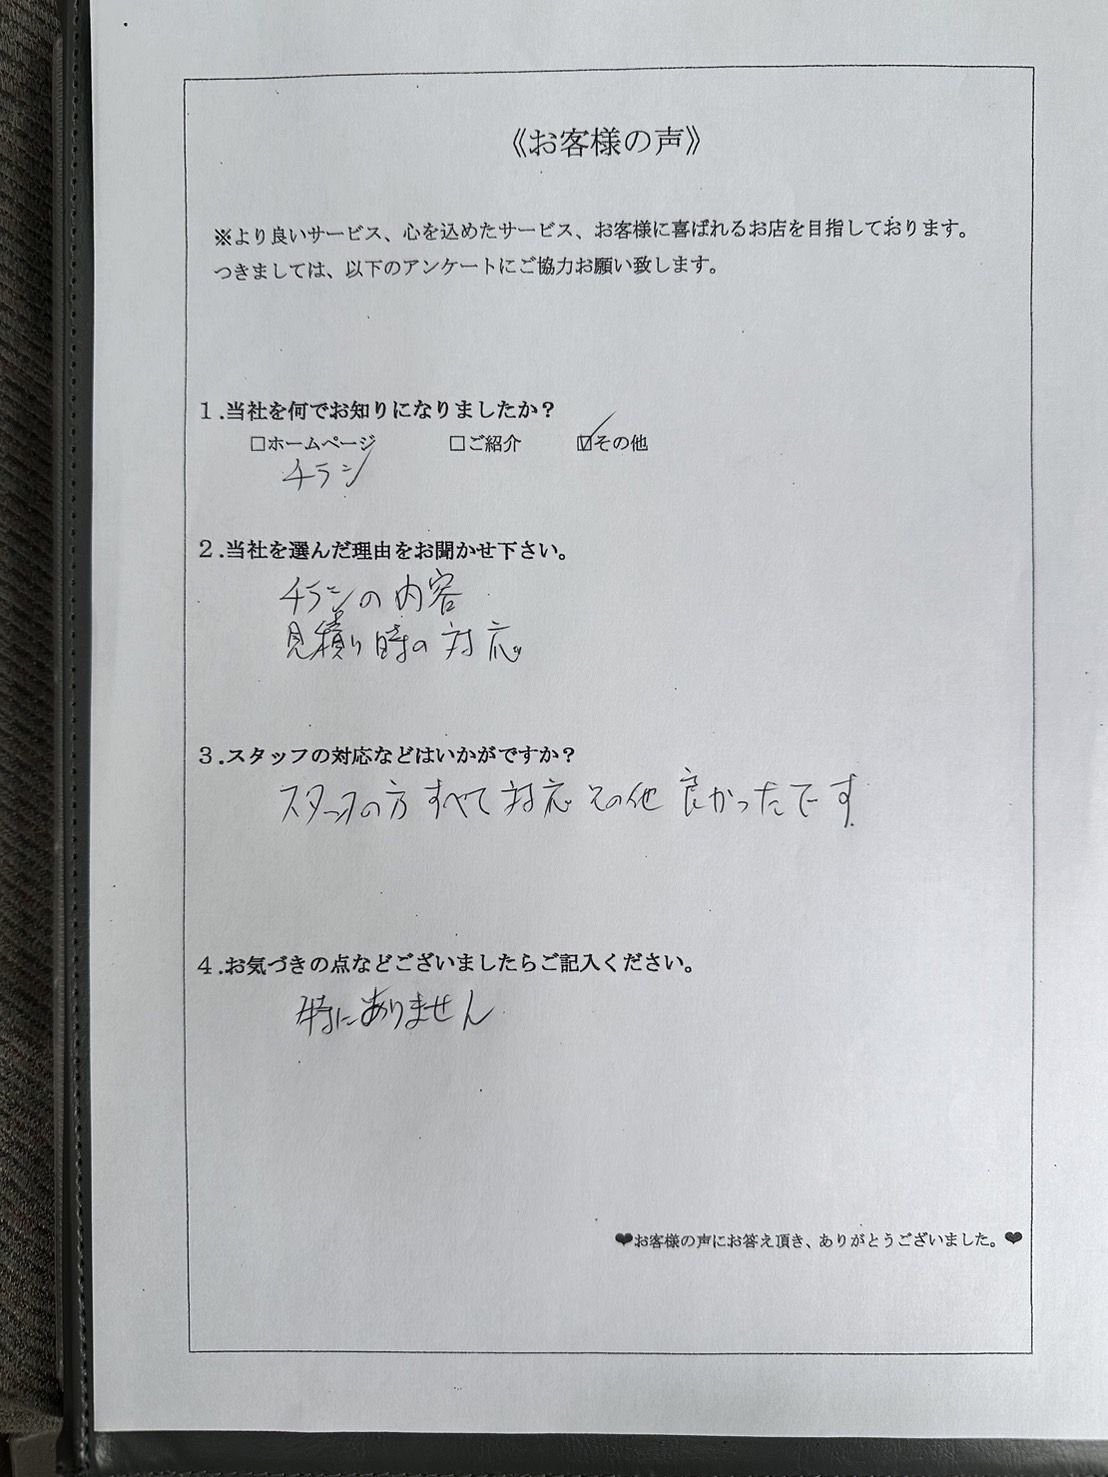 《お客様の声》
※より良いサービス、心を込めたサービス、お客様に喜ばれるお店を目指しております。
つきましては、以下のアンケートにご協力お願い致します。
１.当社を何でお知りになりましたか？
□ホームページ □ご紹介 ☑その他
チラシ
２.当社を選んだ理由をお聞かせ下さい。
チラシの内容
見積り時の対応
３.スタッフの対応などはいかがですか？
スタッフの方すべて対応その他良かったです
４.お気づきの点などございましたらご記入ください。
特にありません
❤お客様の声にお答え頂き、ありがとうございました。❤